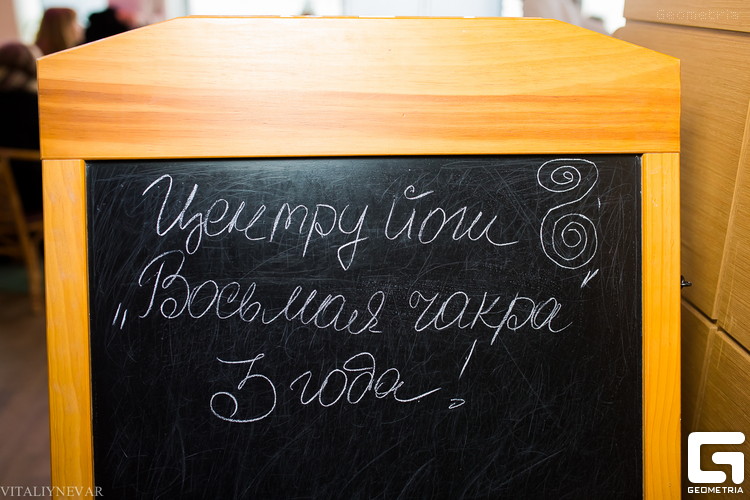 Geometria
Центру йоги
„Восьмая чакра"
3 года!
VITALIYNEVAR
GEOMETRIA